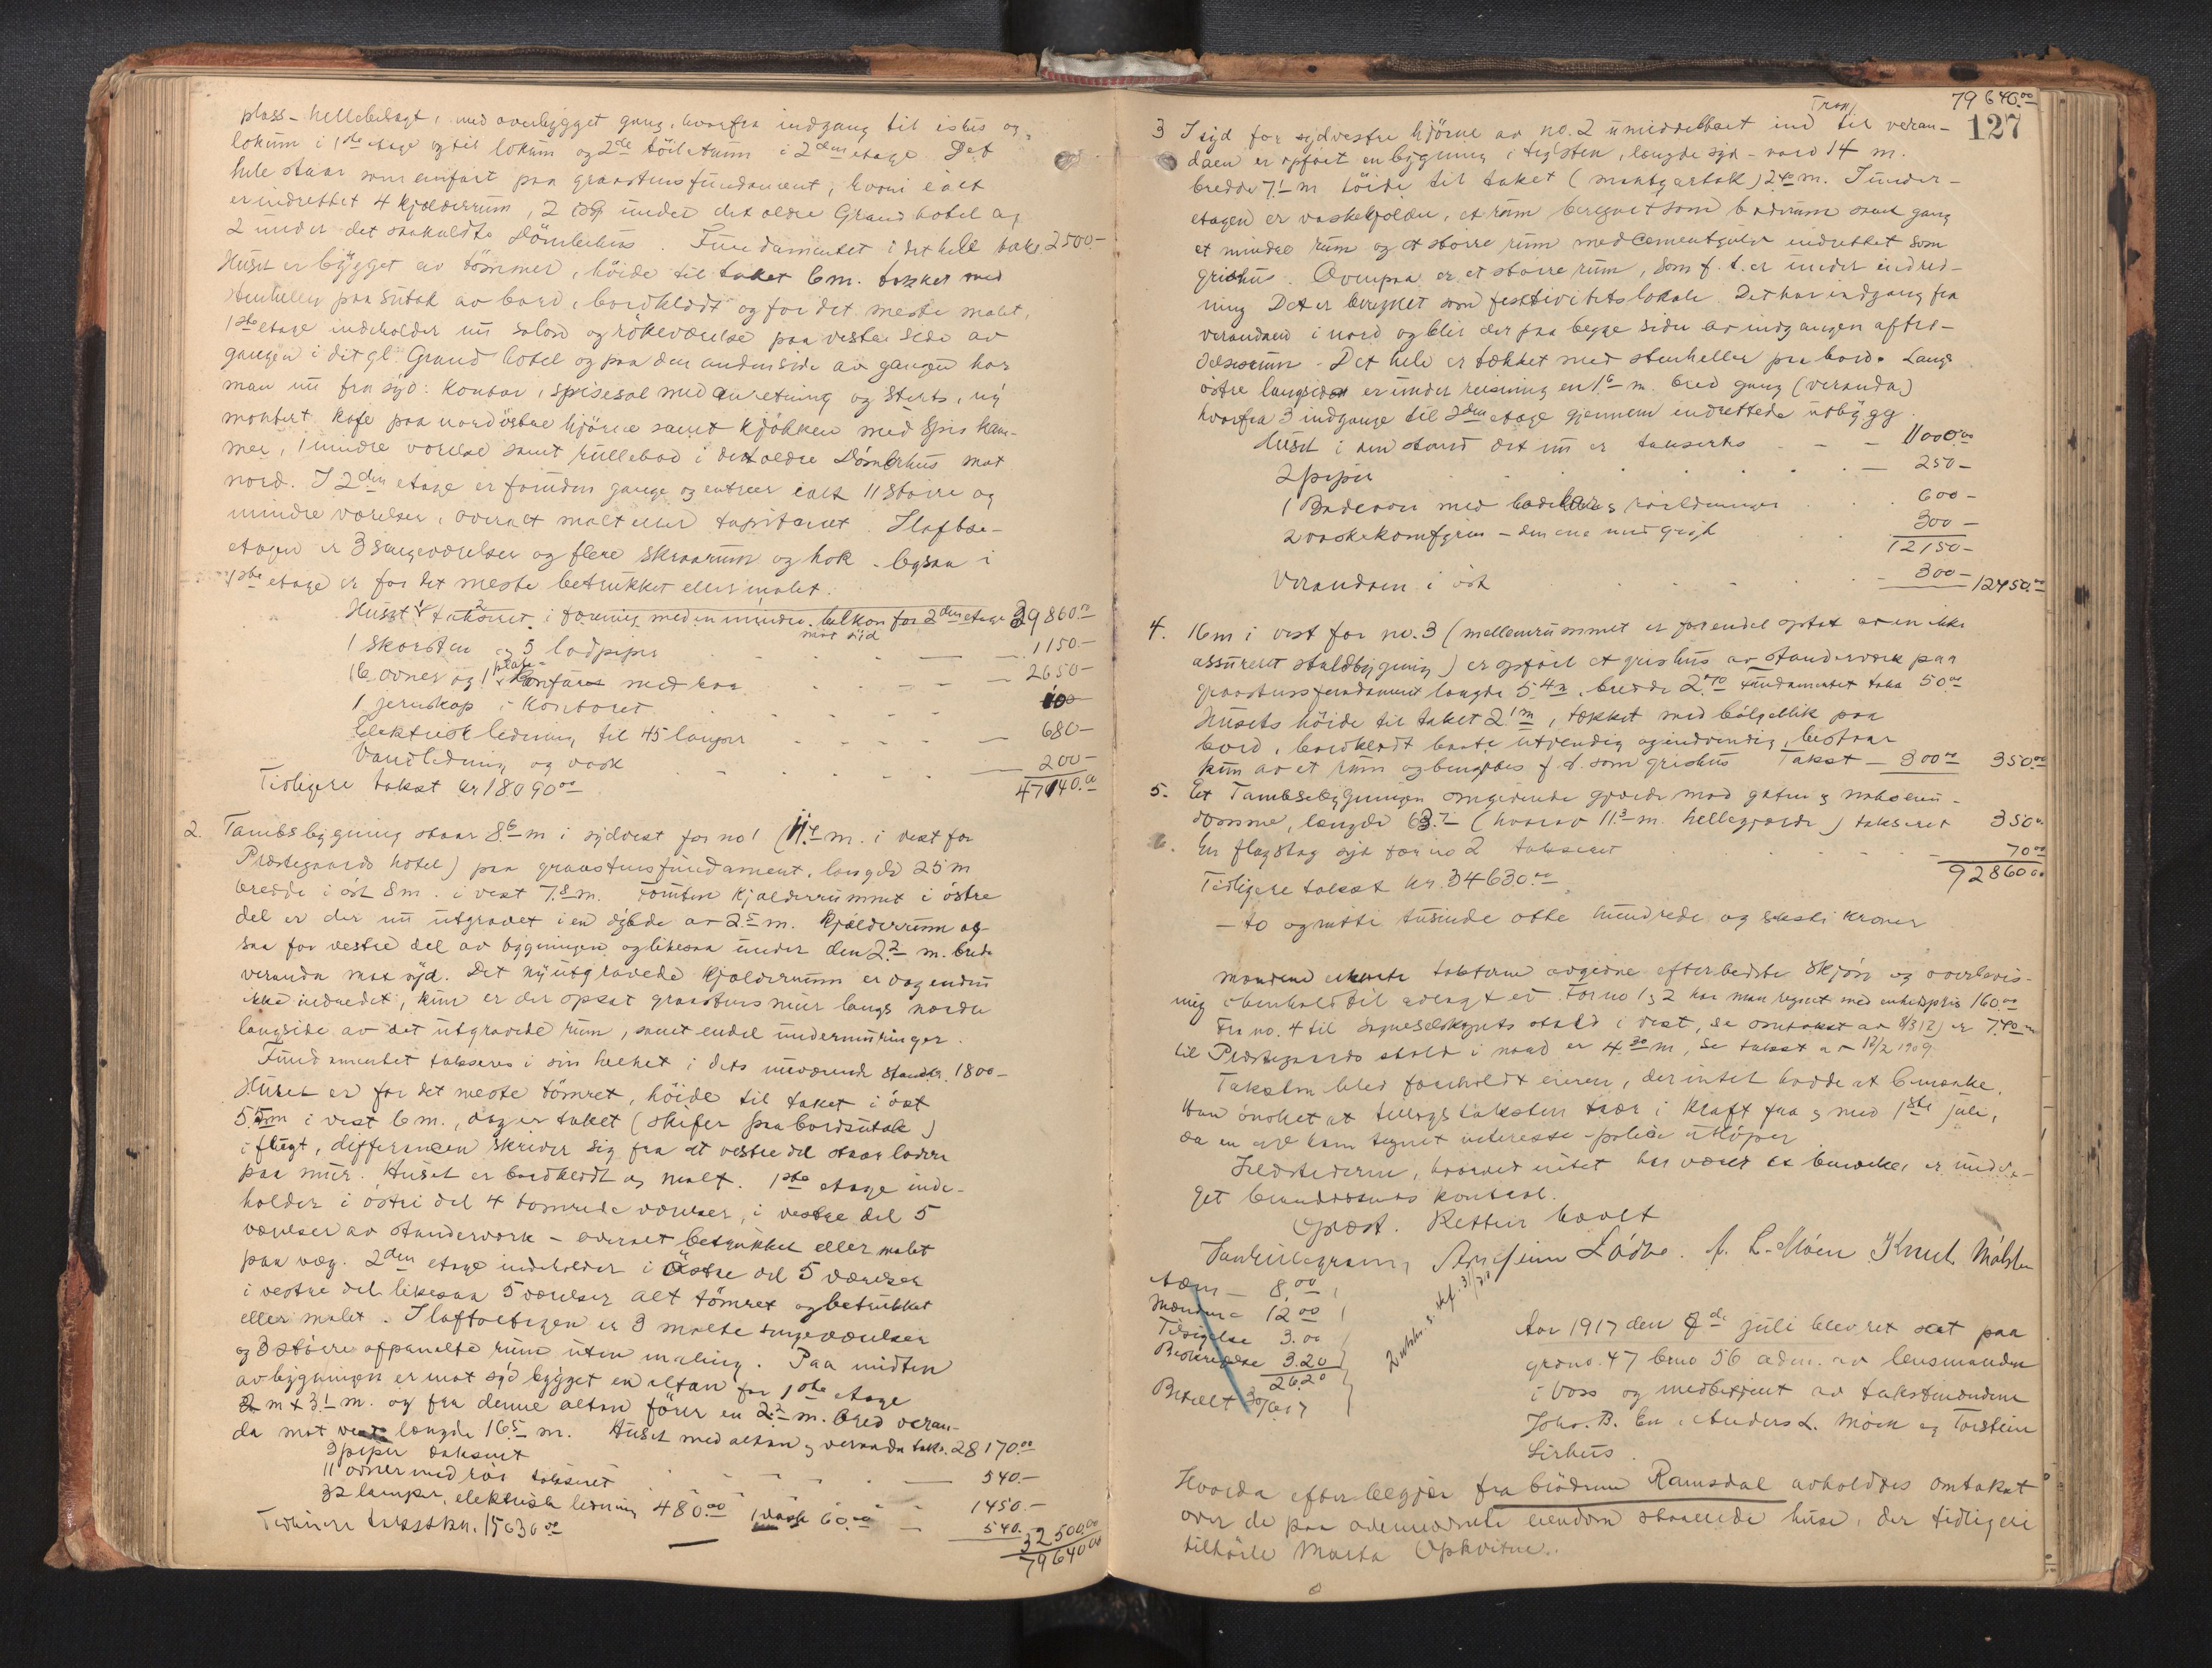 plass - hellebelagt, med overbygget gang, hvorfra indgang til ishus og
lokum i 1ste etage og til lokum og 2de toiletrum i 2den etage. Det
hele staar som anført paa graastensfundament, hvori i alt
er indrettet 4 kjælderrum, 2 under det ældre Grand hotel og
2 under det saakaldte Dömbehus. Fundamentet i det hele takst. 2500.-
Huset er bygget av tømmer, höide til taket 6 m. tækket med
stenheller paa sutak av bord, bordklædt og for det meste malt.
1ste etage indeholder nu salon og rökeværelse paa vestre side av
gangen i det gl. Grand hotel og paa den anden side av gangen har
man nu fra syd: kontor, spisesal med anretning og , ny
montert kafe paa nordöstre hjörne samt kjökken med spiskam-
mer, 1 mindre værelse samt rullebod i det ældre Dömbehus mot
nord. I 2den etage er foruden gange og entreer ialt 11 större og
mindre værelser, overalt malt eller tapiseret. I loftse-
etagen er 3 sengeværelser og flere skraarum og kok. Ogsaa i
1ste etage er for det meste betrukket eller malet.
Huset takseret i forening med en mindre balkon for 2den etage 39860.00
mot syd
1 skorsten og 5 lodpiper 1150-
16 ovner og 1 komfur med rør 2650-
1 jernskap i kontoret 100
Elektrisk ledning til 45 lamper 680-
Vandledning og vask 200-
Tidligere takst kr 18090.00 47140.00
2. Tambsbygning staar 8.6 m i sydvest for no 1 (11.4 m. i vest for
Præstegaards hotel) paa graastensfundament, længde 25 m
bredde i öst 8 m. i vest 7.8 m. Foruten kjælderrummet i östre
del er der nu utgravet i en dybde av 2.5 m. kjælderrum og-
saa for vestre del av bygningen og likesaa under den 2.2 m. brede
veranda mot syd. Det nyutgravede kjælderrum er dog endnu
ikke indredet, kun er der opsat graastens mur langs nordre
langside av det utgravede rum, samt endel undermuringer.
Fundamentet takseres i sin helhet i dets nuværende stand kr. 1800-
Huset er for det meste tömret, höide til taket i öst
5.5 m i vest 6 m., dog er taket (skifer paa bordsutak)
i flugt, differencen skriver sig fra at vestre del staar lavere
paa mur. Huset er bordklædt og malt. 1ste etage inde-
holder i östre del 4 tömrede værelser, i vestre del 5
værelser av standerverk - overalt betrukket eller malet
paa væg. 2den etage indeholder i östre del 5 værelser
i vestre del likesaa 5 værelser alt tömret og betrukket
eller malet. I loftsetagen er 3 malte sengeværelser
og 3 större oppanelte rum uten maling. Paa midten
av bygningen er mot syd bygget en altan for 1ste etage
2 m x 3.1 m. og fra denne altan förer en 2.2 m. bred veran-
da mot vest længde 16.5 m. Huset med altan og veranda taks. 28170.00
3 piper takseret 540.-
11 ovner med rör takseret 1450.-
32 lamper, elektrisk ledning 480.00 1 vask 60.00 540.
Tidligere takst kr. 15630.00 32500.00
79640.00
Transp. 79640.00
127
3 I syd for sydvestre hjörne av no. 2 umiddelbart ind til veran-
daen er opfört en bygning i teglsten, længde syd - nord 14 m.
bredde 7.1 m. höide til taket (mansardtak) 2.40 m. I under-
etagen er vaskekjælder, et rum beregnet som baderum samt gang
et mindre rum og et större rum med cementgulv indrettet som
grishus. Ovenpaa er et större rum, som f. t. er under indred-
ning. Det er beregnet som festivitetslokale. Det har indgang fra
verandaen i nord og blir der paa begge sider av indgangen aftræ-
delsesrum. Det hele er tækket med stenheller paa bord. Langs
östre langside er under reisning en 1.6 m. bred gang (veranda)
hvorfra 3 indgange til 2den etage gjennem indrettede utbygg.
Huset i den stand det nu er takseres 11000.00
2 piper 250-
1 Badeovn med badekar og rörledninger 600-
2 vaskekomfyrer - den ene med gryte 300-
12150-
Verandaen i öst 300- 12450.00
4. 16 m i vest for no. 3 (mellemrummet er for en del optat av en ikke
assureret staldbygning) er opfört et grishus av standerverk paa
graastensfundament længde 5.4 m, bredde 2.70 fundamentet taks. 50.00
Husets höide til taket 2.1 m, tækket med bölgeblik paa
bord, bordklædt baade utvendig og indvendig, bestaar
kun av et rum og benyttes f. t. som grishus Takst - 300.00 350.00
5. Et Tambsbygningen omgivende gjærde mot gaten og naboeien-
domme, længde 63.7 (hvorav 11.3 m. hellegjærde) takseret 350.
6. En flagstang syd for no 2 takseret 70.00
Tidligere takst kr. 34630.00 92860.00
- to og nitti tusinde otte hundrede og seksti kroner
Mændene erklærte taksterne avgivne efter bedste skjön og overbevis-
ning i henhold til avlagt ed. For no 1 og 2 har man regnet med enhetspris 160.00
Fra no. 4 til stald i vest, se omtakst av 8/3 12) er 7.40 m
til Præstegaards stald i nord er 4.30 m, se takst av 12/2 1909.
Taksten blev foreholdt eieren, der intet hadde at bemerke.
Han önsket at tillægstaksten trær i kraft fra og med 1ste juli,
da en av ham tegnet interesse-polise utlöper.
Ildstederne, hvorved intet har været at bemerke, er undergit
brandvæsnets kontrol.
Oplæst. Retten hævet
Arnfinn Lödve. A. L. Möen Knut Mölster
Læns - 8.00
Mændene 12.00
Tilsigelse 3.00
Beskrivelse 3.20
26.20
Betalt 30/6 17
Aar 1917 den 9de juli blev ret sat paa
grdno. 47 brno 56 adm. av lensmanden
i Voss og medbetjent av takstmændene
Johs. B. En, Anders L. Möen og Torstein
Lirhus.
Hvorda efter begjær fra brödrene Ramsdal avholdtes omtakst
over de paa ovennævnte eiendom staaende huse, der tidligere
tilhörte Marta Opkvitne.